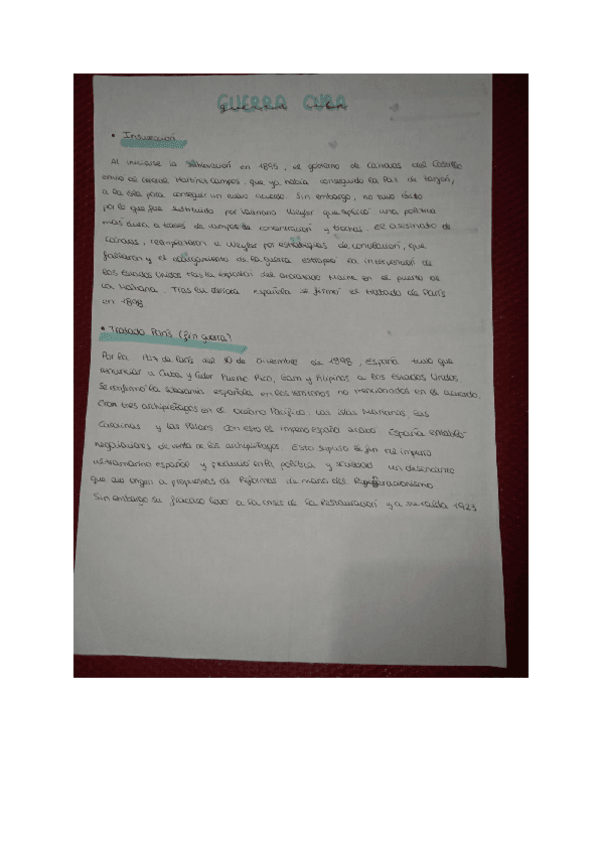 GUERRA CUBA
• Insurrección
Al iniciarse la sublevación en 1895, el gobierno de Cánovas del Castillo
envió al General Martínez Campos, que ya había conseguido la Paz de Zanjón,
a la isla para conseguir un nuevo acuerdo. Sin embargo, no tuvo éxito
por lo que fue sustituido por Valeriano Weyler que aplicó una política
más dura a través de campos de concentración y trochas. El asesinato de
Cánovas, reemplazaron a Weyler por estrategias de conciliación, que
fallaron y el alargamiento de la guerra estropeó la intervención de
los Estados Unidos tras la explosión del acorazado Maine en el puerto de
La Habana. Tras la derrota española se firmó el tratado de París
en 1898.
• Tratado París (fin guerra)
Por la Paz de París del 10 de diciembre de 1898, España tuvo que
renunciar a Cuba y ceder Puerto Rico, Guam y Filipinas a los Estados Unidos.
Se confirmó la soberanía española en los territorios no mencionados en el acuerdo.
Eran tres archipiélagos en el Océano Pacífico: Las islas Marianas, las
Carolinas y las Palaos con esto el imperio español acabó España entabló
negociaciones de venta de los archipiélagos. Esto supuso el fin del imperio
ultramarino español y produjo en la política y sociedad un desencanto
que dio origen a propuestas de Reformas de mano del Regeneracionismo
Sin embargo su fracaso llevó a la crisis de la Restauración y a su caída 1923